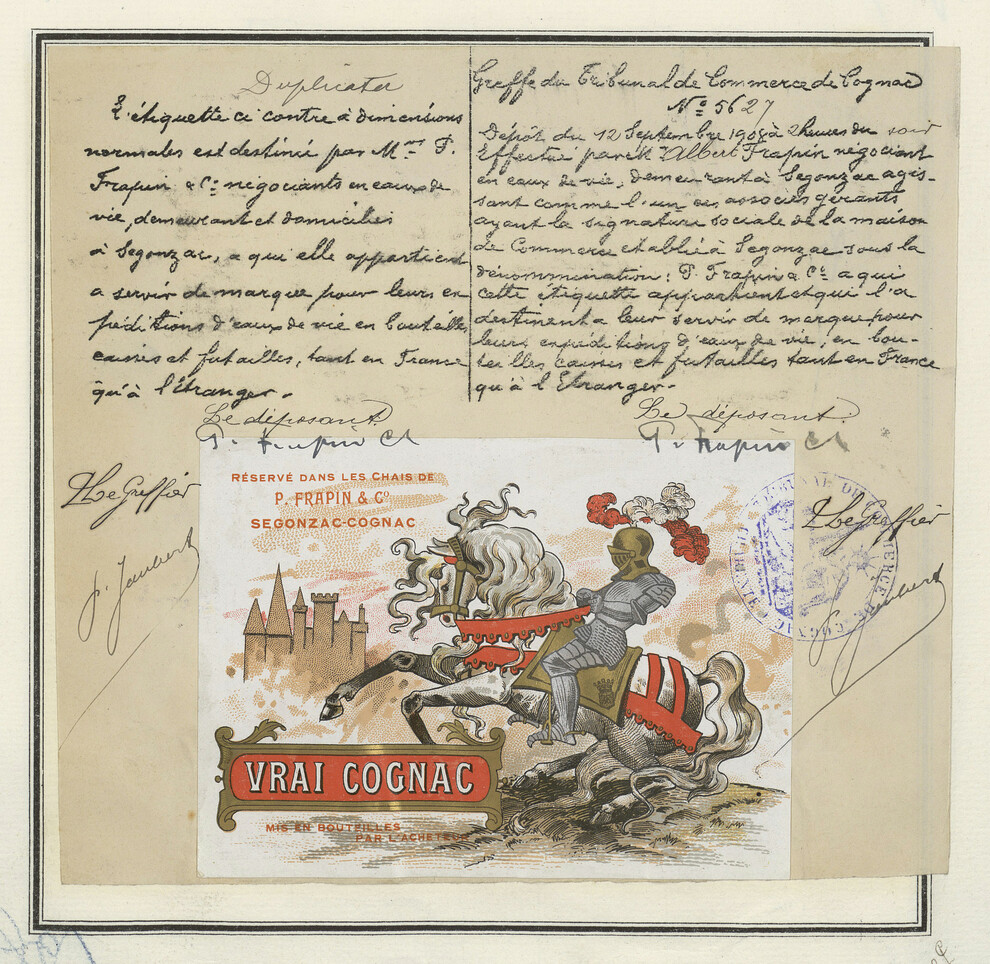 Duplicata
L'étiquette ci contre à dimensions
normales est destinée par M.rs P.
Frapin & Cº négociants en eaux de
vie, demeurant et domiciliés
à Segonzac, a qui elle appartient
a servir de marque pour leurs ex
péditions d'eaux de vie en bouteilles
caisses et futailles, tant en France
qu'à l'étranger.
Le déposant.
P. Frapin Cº
Le Greffier
Greffe du Tribunal de Commerce de Cognac
Nº 5627
Dépôt du 12 Septembre 1908 à 2 heures du soir
Effectué par M. Albert Frapin négociant
en eaux de vie, demeurant à Segonzac agis-
sant comme l'un des associés gérants,
ayant la signature sociale de la maison
de Commerce etablie à Segonzac sous la
dénommination: P. Frapin & Cº a qui
cette étiquette appartient et qui l'a
destinent a leur servir de marque pour
leurs expeditions d'eaux de vie, en bou-
teilles caisses et futailles tant en France
qu'à l'Etranger.
Le déposant.
P. Frapin Cº
Le Greffier
RÉSERVÉ DANS LES CHAIS DE
P. FRAPIN & Cº
SEGONZAC-COGNAC
VRAI COGNAC
MIS EN BOUTEILLES
PAR L'ACHETEUR